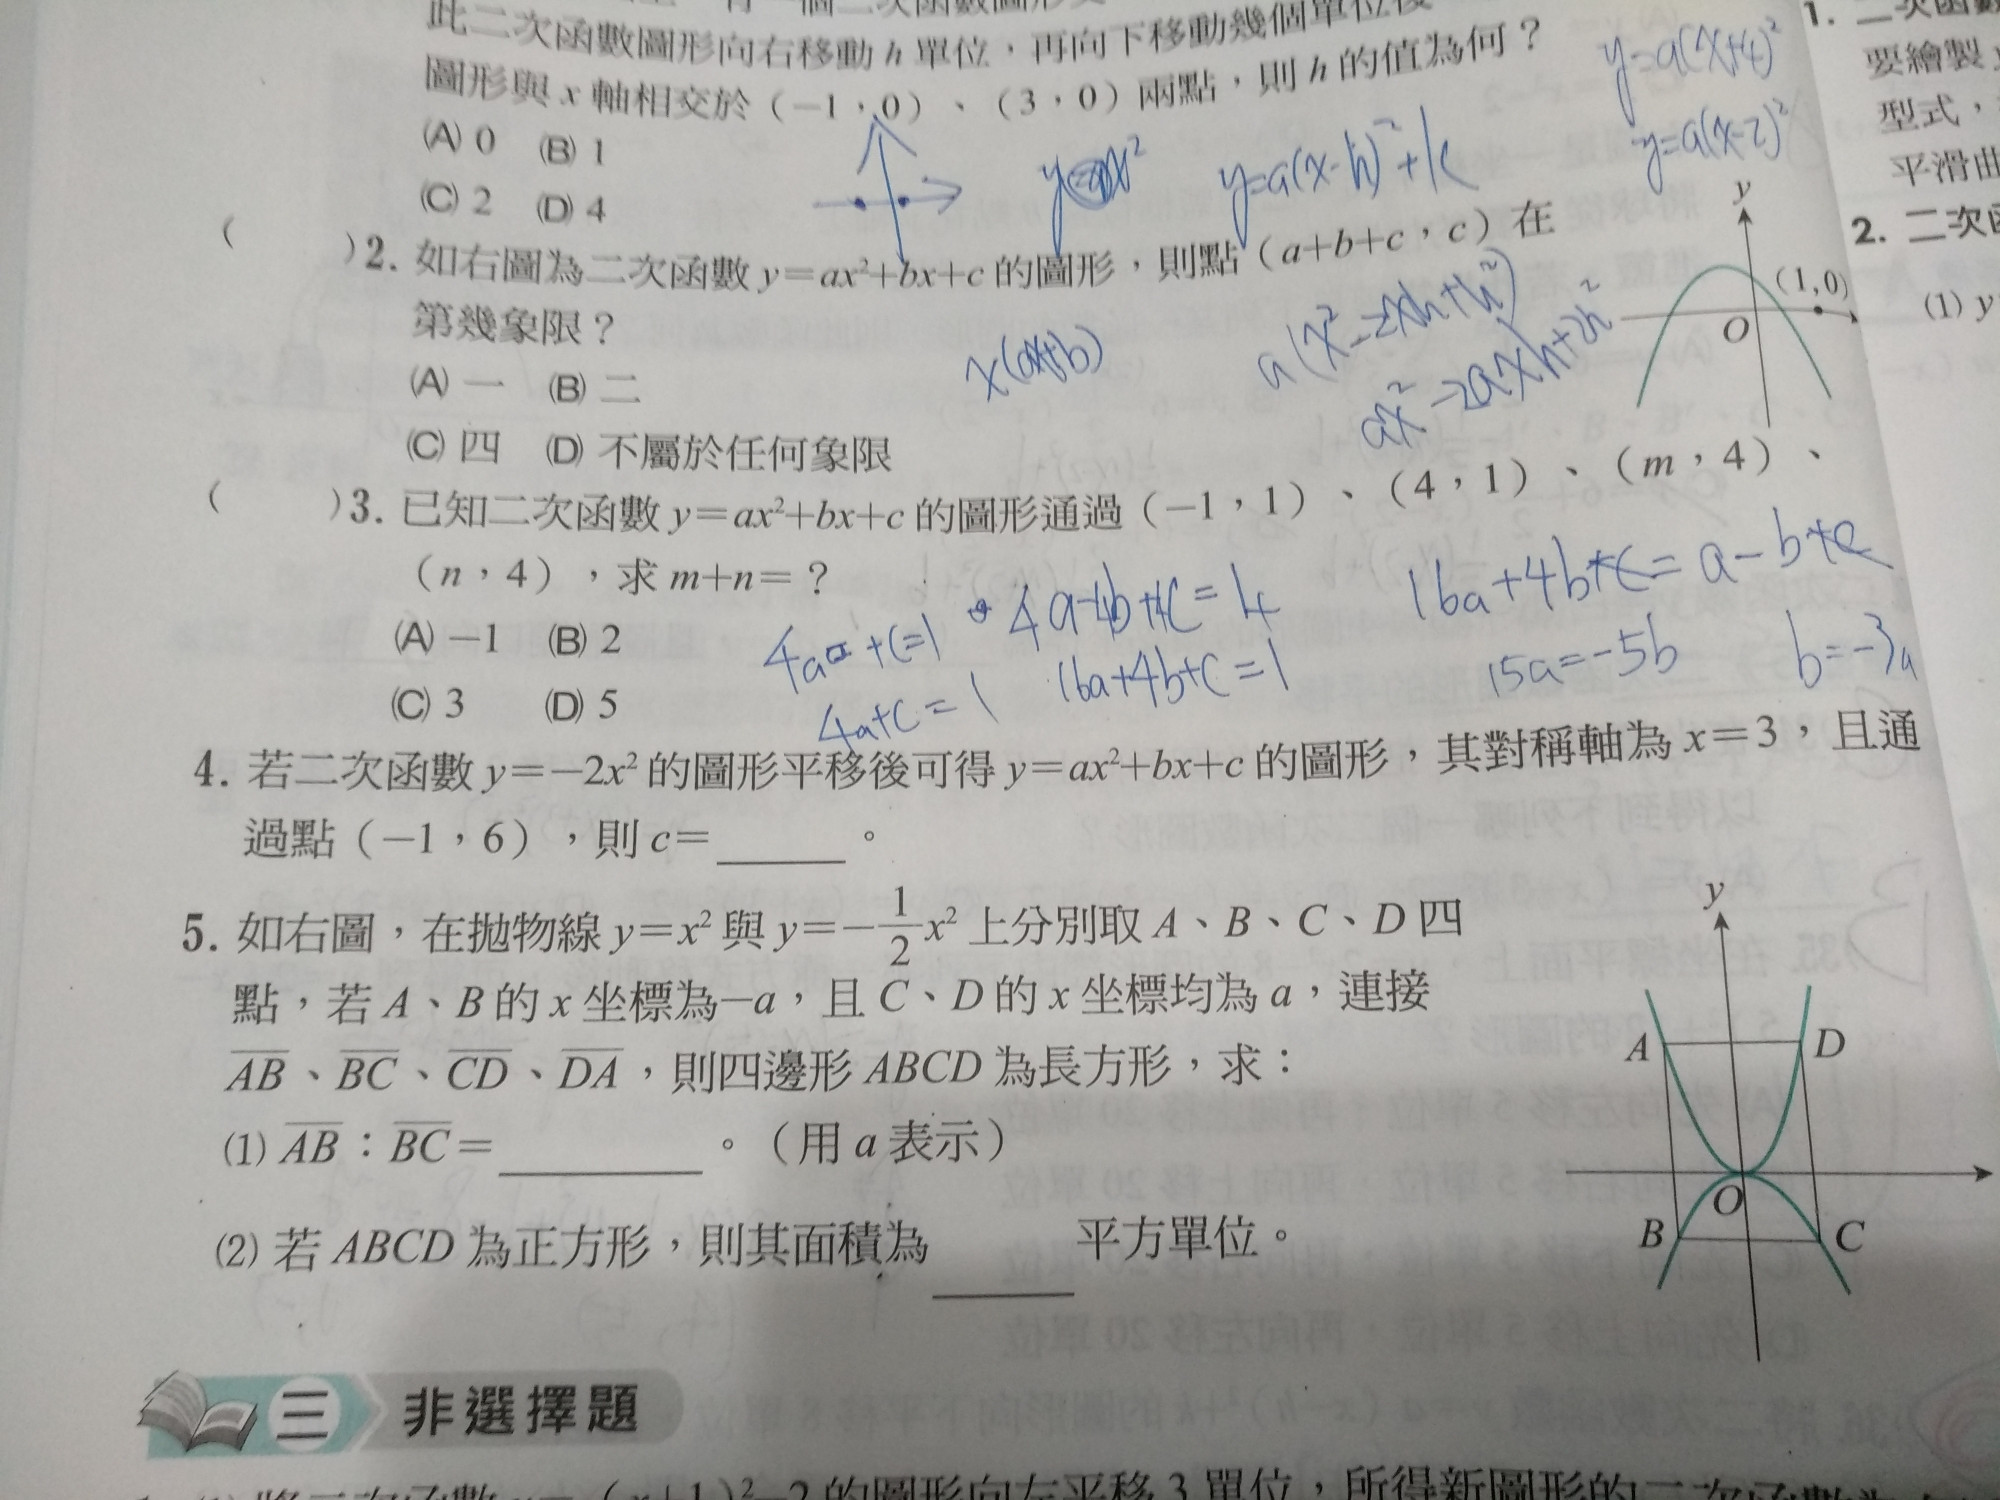 此二次函數圖形向右移動 h 單位,再向下移動幾個單位後
圖形與 x 軸相交於(−1,0)、(3,0)兩點,則 h 的值為何?
(A) 0 (B) 1
(C) 2 (D) 4
y=a(x-h)²+k
y=a(x+4)²
y=a(x-2)²
( )2. 如右圖為二次函數 y=ax²+bx+c 的圖形,則點(a+b+c,c)在
第幾象限?
(A) 一 (B) 二
(C) 四 (D) 不屬於任何象限
x(ax+b)
a(x²-2xh+h²)
ax²-2axh+2h²
y
(1,0)
O
( )3. 已知二次函數 y=ax²+bx+c 的圖形通過(−1,1)、(4,1)、(m,4)、
(n,4),求 m+n=?
(A) −1 (B) 2
(C) 3 (D) 5
4a+c=1
4a-4b+4c=4
16a+4b+c=1
16a+4b+c=a-b+c
15a=-5b
b=-3a
4. 若二次函數 y=−2x² 的圖形平移後可得 y=ax²+bx+c 的圖形,其對稱軸為 x=3,且通
過點(−1,6),則 c=______。
5. 如右圖,在拋物線 y=x² 與 y=−1/2x² 上分別取 A、B、C、D 四
點,若 A、B 的 x 坐標為−a,且 C、D 的 x 坐標均為 a,連接
AB、BC、CD、DA,則四邊形 ABCD 為長方形,求:
(1) AB:BC=________。(用 a 表示)
(2) 若 ABCD 為正方形,則其面積為______平方單位。
y
A D
O
B C
三 非選擇題
(x+1)²−2 的圖形向左平移 3 單位,所得新圖形的二次函數為
1. 二次函數
要繪製 y
型式,
平滑曲
2. 二次函
(1) y